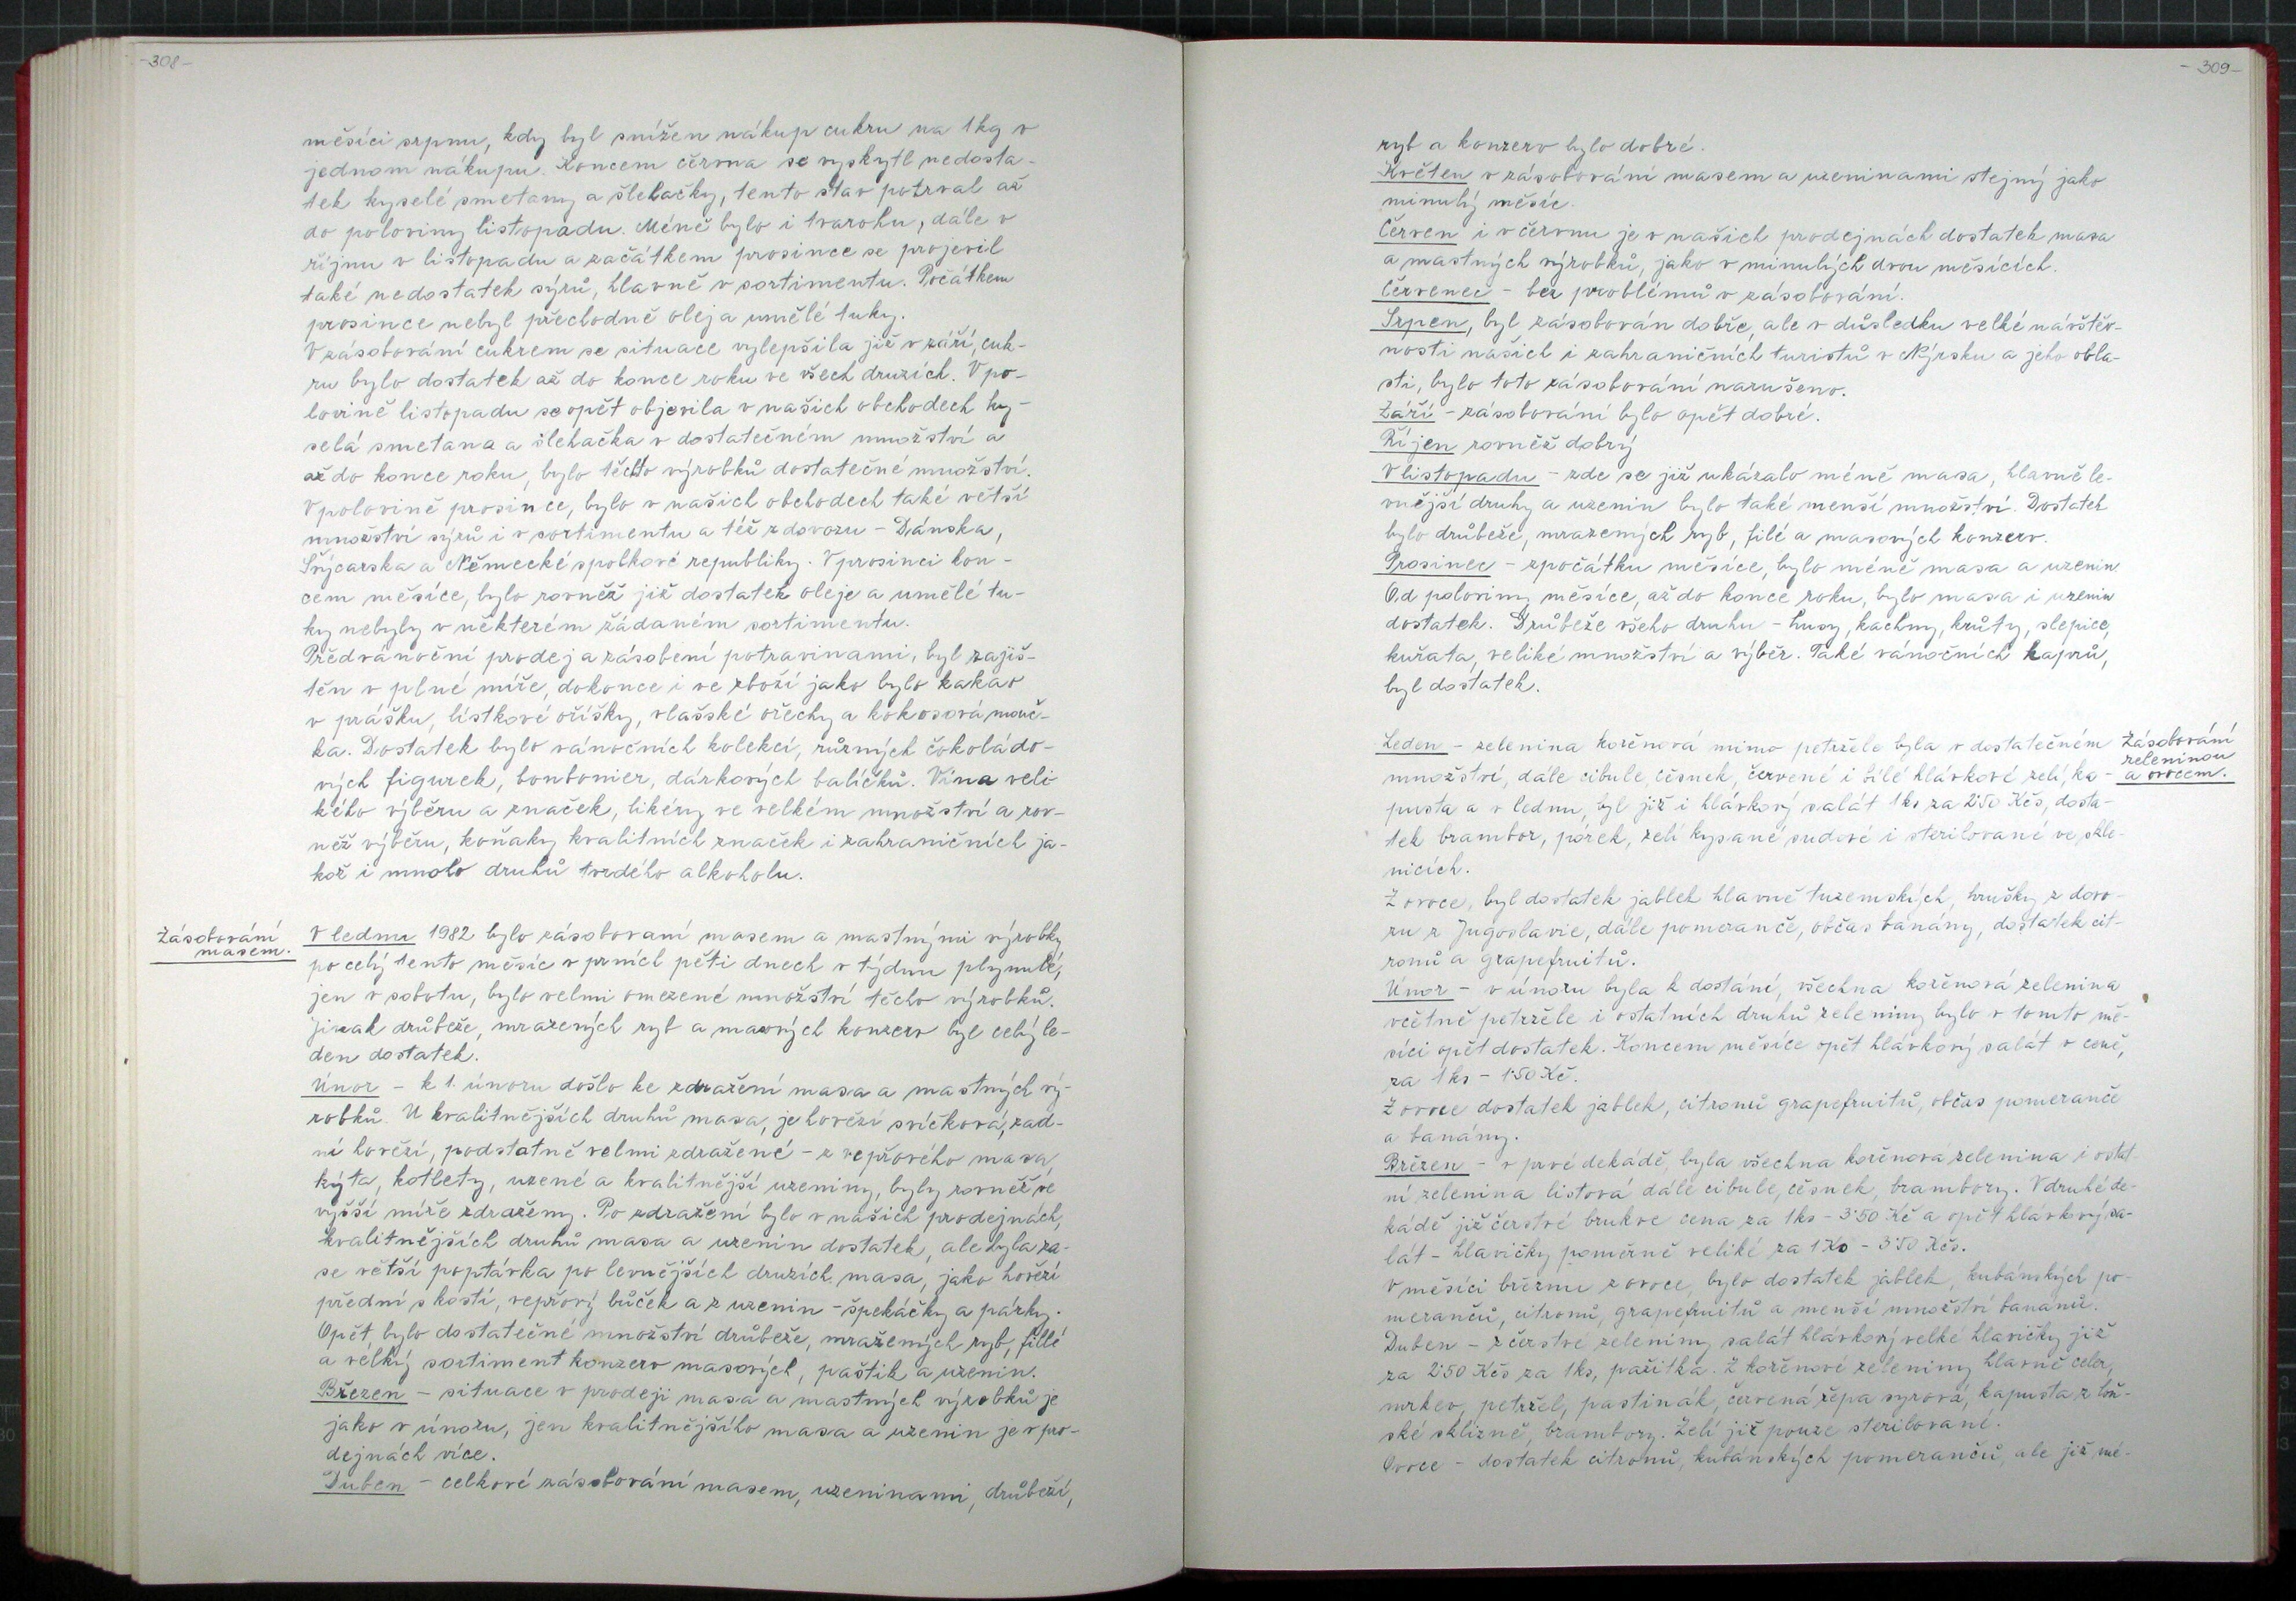 -308-
měsíci srpnu, kdy byl snížen nákup cukru na 1kg v
jednom nákupu. Koncem června se vyskytl nedosta-
tek kyselé smetany a šlehačky, tento stav potrval až
do poloviny listopadu. Méně bylo i tvarohu, dále v
říjnu v listopadu a začátkem prosince se projevil
také nedostatek sýrů, hlavně v sortimentu. Počátkem
prosince nebyl přechodně olej a umělé tuky.
V zásobování cukrem se situace vylepšila již v září, cuk-
ru bylo dostatek až do konce roku ve všech druzích. V po-
lovině listopadu se opět objevila v našich obchodech ky-
selá smetana a šlehačka v dostatečném množství a
až do konce roku, bylo těchto výrobků dostatečné množství.
V polovině prosince, bylo v našich obchodech také větší
množství sýrů i v sortimentu a též z dovozu - Dánska,
Švýcarska a Německé spolkové republiky. V prosinci kon-
cem měsíce, bylo rovněž již dostatek oleje a umělé tu-
ky nebyly v některém žádaném sortimentu.
Předvánoční prodej a zásobení potravinami, byl zajiš-
těn v plné míře, dokonce i ve zboží jako bylo kakao
v prášku, lístkové oříšky, vlašské ořechy a kokosová mouč-
ka. Dostatek bylo vánočních kolekcí, různých čokoládo-
vých figurek, bonbonier, dárkových balíčků. Vína veli-
kého výběru a značek, likéry ve velkém množství a rov-
něž výběru, koňaky kvalitních značek i zahraničních ja-
kož i mnoho druhů tvrdého alkoholu.
Zásobování
masem.
V lednu 1982 bylo zásobovaní masem a mastnými výrobky
po celý tento měsíc v prních pěti dnech v týdnu plynulé,
jen v sobotu, bylo velmi omezené množství těcho výrobků.
Jinak drůbeže, mražených ryb a masových konzerv byl celý le-
den dostatek.
Únor - k 1. únoru došlo ke zdražení masa a mastných vý-
robků. U kvalitnějších druhů masa, je hovězí svíčková, zad-
ní hovězí, podstatně velmi zdražené - z vepřového masa
kýta, kotlety, uzené a kvalitnější uzeniny, byly rovněž ve
vyšší míře zdraženy. Po zdražení bylo v našich prodejnách,
kvalitnějších druhů masa a uzenin dostatek, ale byla za-
se větší poptávka po levnějších druzích masa, jako hovězí
přední s kostí, vepřový bůček a z uzenin - špekáčky a párky.
Opět, bylo dostatečné množství drůbeže, mražených ryb, fillé
a velký sortiment konzerv masových, paštik a uzenin.
Březen - situace v prodeji masa a mastných výrobků je
jako v únoru, jen kvalitnějšího masa a uzenin je v pro-
dejnách více.
Duben - celkové zásobování masem, uzeninami, drůbeží,
-309-
ryb a konzerv bylo dobré.
Květen v zásobování masem a uzeninami stejný jako
minulý měsíc.
Červen i v červnu je v našich prodejnách dostatek masa
a mastných výrobků, jako v minulých dvou měsících.
Červenec - bez problémů v zásobování.
Srpen, byl zásobován dobře, ale v důsledku velké návštěv-
nosti našich i zahraničních turistů v Nýrsku a jeho obla-
sti, bylo toto zásobování narušeno.
Září - zásobování bylo opět dobré.
Říjen rovněž dobrý
V listopadu - zde se již ukázalo méně masa, hlavně le-
vnější druhy a uzenin bylo také menší množství. Dostatek
bylo drůbeže, mražených ryb, filé a masových konzerv.
Prosinec - zpočátku měsíce, bylo méně masa a uzenin.
Od poloviny měsíce, až do konce roku, bylo masa i uzenin
dostatek. Drůbeže všeho druhu - husy, kachny, krůty, slepice,
kuřata, veliké množství a výběr. Také vánočních kaprů,
byl dostatek.
Zásobování
zeleninou
a ovocem.
Leden - zelenina kořěnová mimo petržele byla v dostatečném
množství, dále cibule, česnek, červené i bílé hlávkové zelí, ka-
pusta a v lednu, byl již i hlávkový salát 1ks za 2'50 Kčs, dosta-
tek brambor, pórek, zelí kysané sudové i sterilované ve skle-
nicích.
Z ovoce, byl dostatek jablek hlavně tuzemských, hrušky z dovo-
zu z Jugoslavie, dále pomeranče, občas banány, dostatek cit-
ronů a grapefruitů.
Únor - v únoru byla k dostání, všechna kořěnová zelenina
včetně petržele i ostatních druhů zeleniny bylo v tomto mě-
síci opět dostatek. Koncem měsíce opět hlávkový salát v ceně,
za 1ks - 1'50 Kč.
Z ovoce dostatek jablek, citronů grapefruitů, občas pomeranče
a banány.
Březen - v prvé dekádě, byla všechna kořěnová zelenina i ostat-
ní zelenina listová dále cibule, česnek, brambory. V druhé de-
kádě již čerstvé brukve cena za 1ks - 3'50 Kč a opět hlávkový sa-
lát - hlavičky poměrně veliké za 1Ks - 3'50 Kčs.
V měsíci březnu z ovoce, bylo dostatek jablek, kubánských po-
merančů, citronů, grapefruitů a menší množství banánů.
Duben - z čerstvé zeleniny salát hlávkový velké hlavičky již
za 2'50 Kčs za 1ks, pažitka. Z kořěnové zeleniny hlavně celer,
mrkev, petržel, pastinák, červená řepa syrová, kapusta z loň-
ské sklizně, brambory. Zelí již pouze sterilované.
Ovoce - dostatek citronů, kubánských pomerančů, ale již mé-